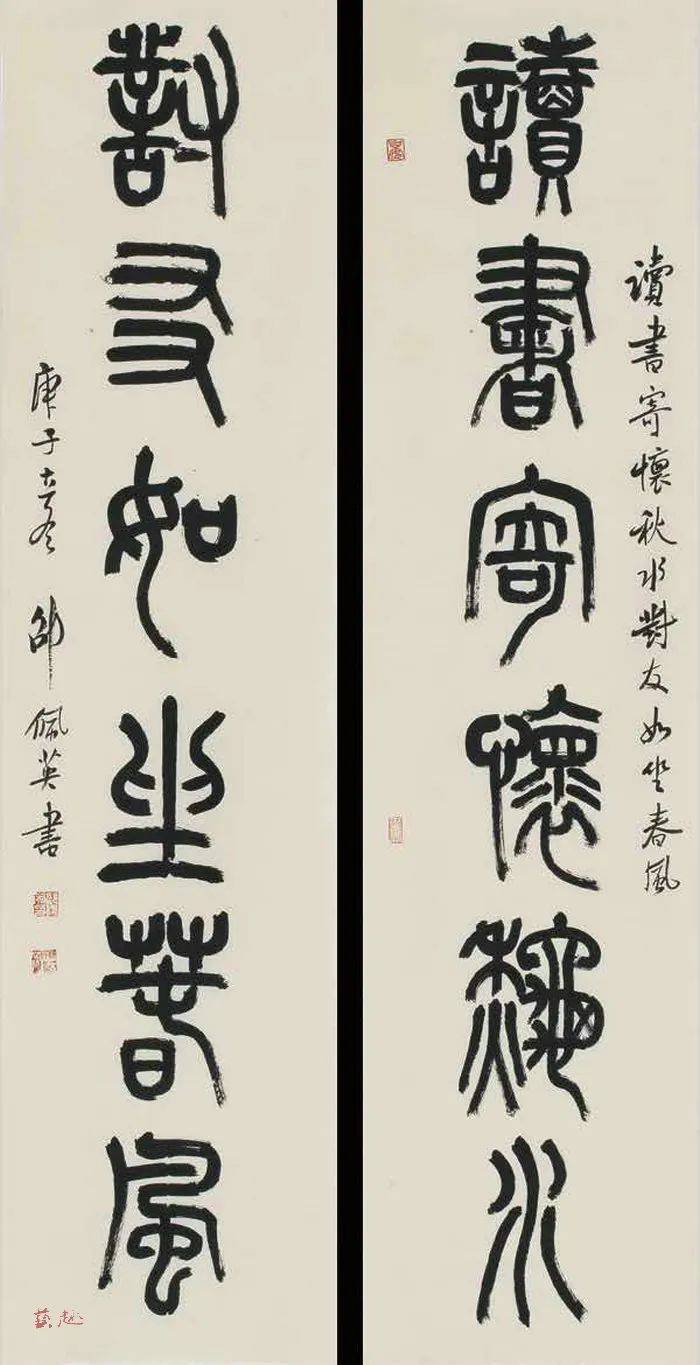 讀書寄懷秋水對友如坐春風
讀書寄懷龝水
對友如坐春風
庚子冬 邵佩英書